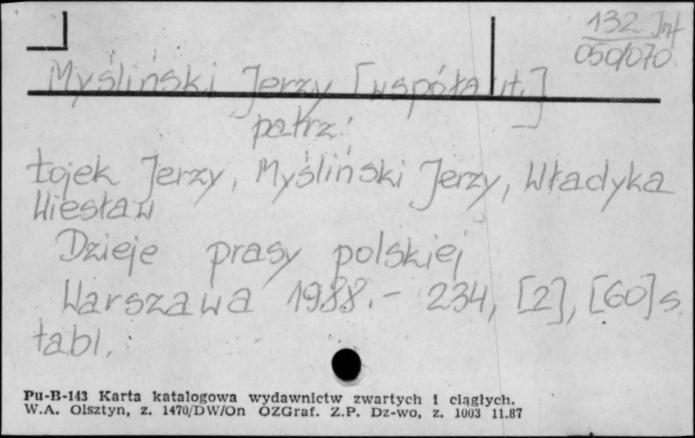 132 Inf
050/070
Myśliński Jerzy [współaut.]
patrz:
Łojek Jerzy, Myśliński Jerzy, Władyka
Wiesław
Dzieje prasy polskiej
Warszawa 1988.- 234, [2], [60] s.
tabl.
Pu-B-143 Karta katalogowa wydawnictw zwartych i ciągłych.
W.A. Olsztyn, z. 1470/DW/On OZGraf. Z.P. Dz-wo, z. 1003 11.87